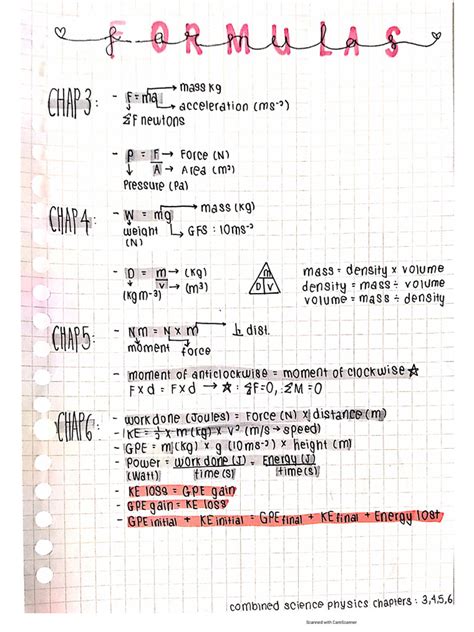 FORMULAS
CHAP 3: - F = ma → mass kg
→ acceleration (ms⁻²)
ΣF newtons
- P = F → Force (N)
A → Area (m²)
Pressure (Pa)
CHAP 4: - W = mg → mass (kg)
weight → GFS : 10ms⁻²
(N)
- D = m → (kg)
v → (m³)
(kgm⁻³)
m
D V
mass = density x volume
density = mass ÷ volume
volume = mass ÷ density
CHAP 5: - Nm = N x m → ⊥ dist.
moment force
- moment of anticlockwise = moment of clockwise ☆
F x d = F x d → ☆ : ΣF=0, ΣM=0
CHAP 6: - work done (Joules) = Force (N) x distance (m)
- KE = ½ x m (kg) x v² (m/s → speed)
- GPE = m (kg) x g (10ms⁻²) x height (m)
- Power = work done (J) = Energy (J)
(Watt) time (s) time (s)
- KE loss = GPE gain
- GPE gain = KE loss
- GPE initial + KE initial = GPE final + KE final + Energy lost
combined science physics chapters : 3,4,5,6
Scanned with CamScanner